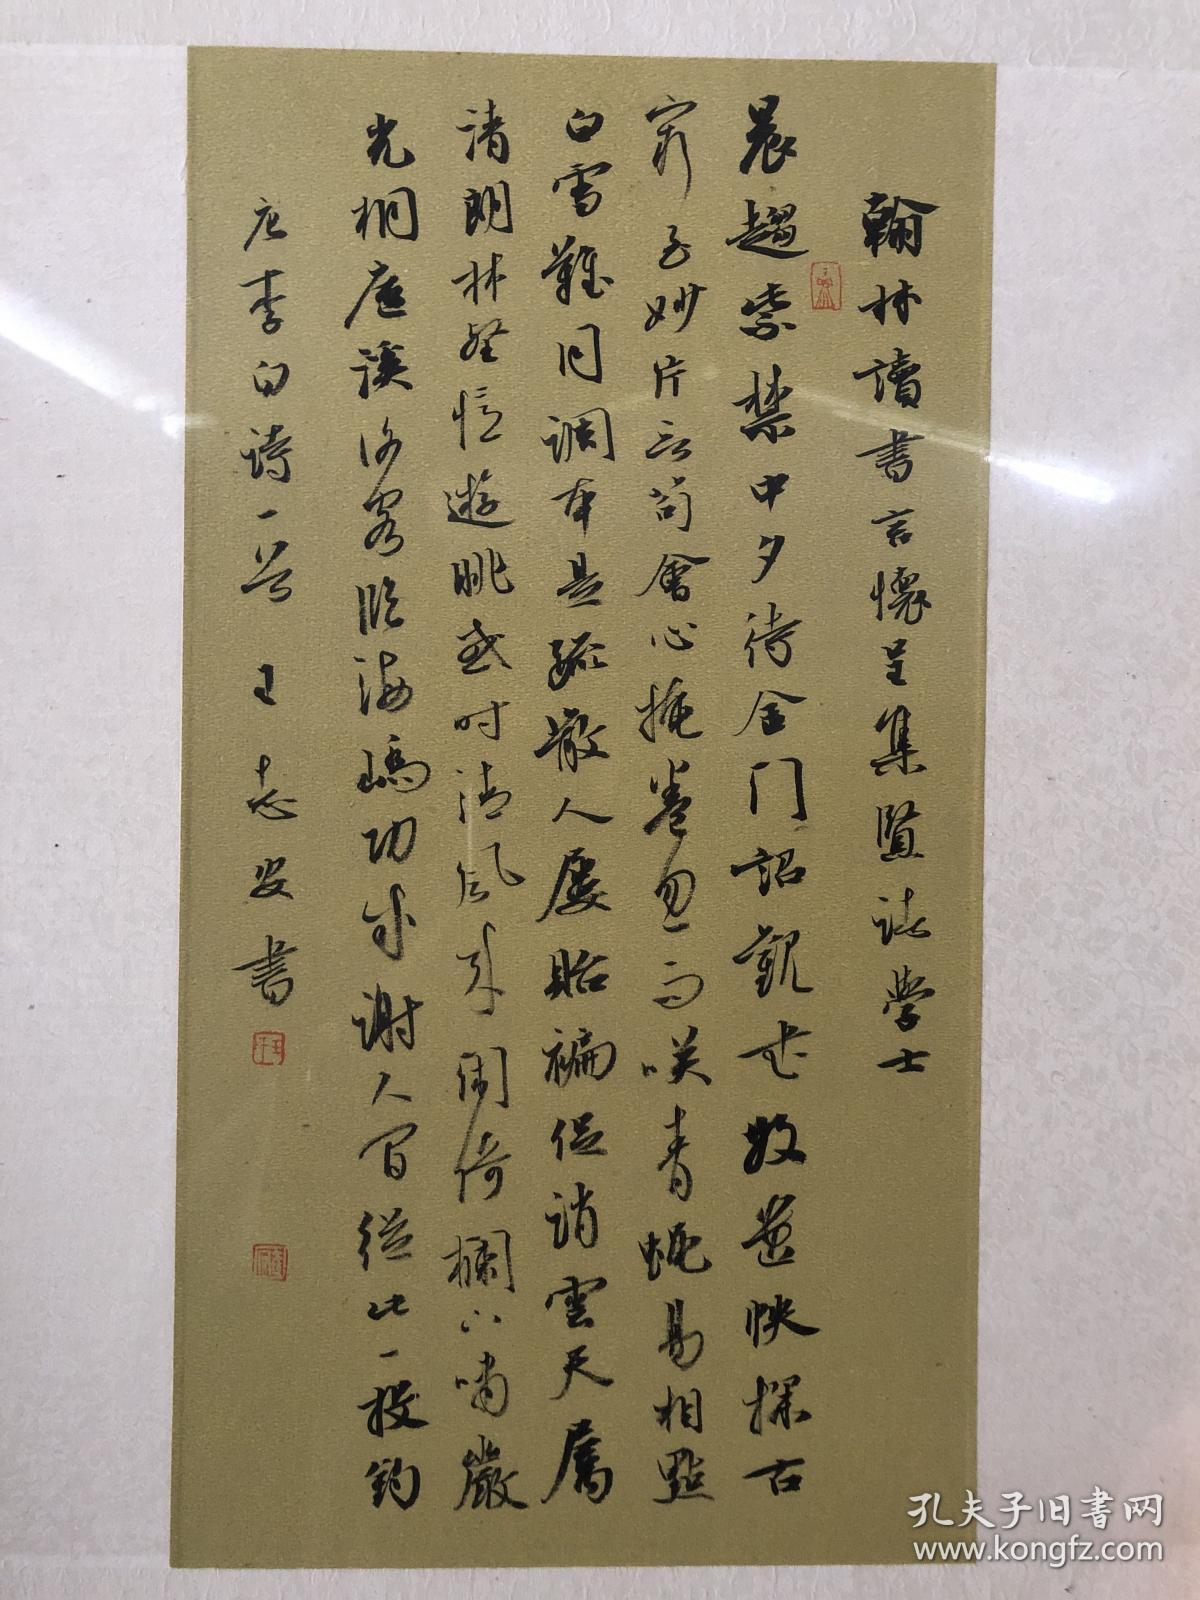 翰林讀書言懷呈集賢諸學士
晨趨紫禁中夕待金门詔觀書散遺帙探古
窮至妙片言苟會心掩卷忽而笑青蠅易相點
白雪難同調本是疏散人屢貽褊促誚雲天屬
清朗林壑憶遊眺或时清风来闲倚欄下嘯嚴
光桐廬溪谢客臨海嶠功成謝人间從此一投釣
唐李白诗一首 王志安書
孔夫子旧书网
www.kongfz.com